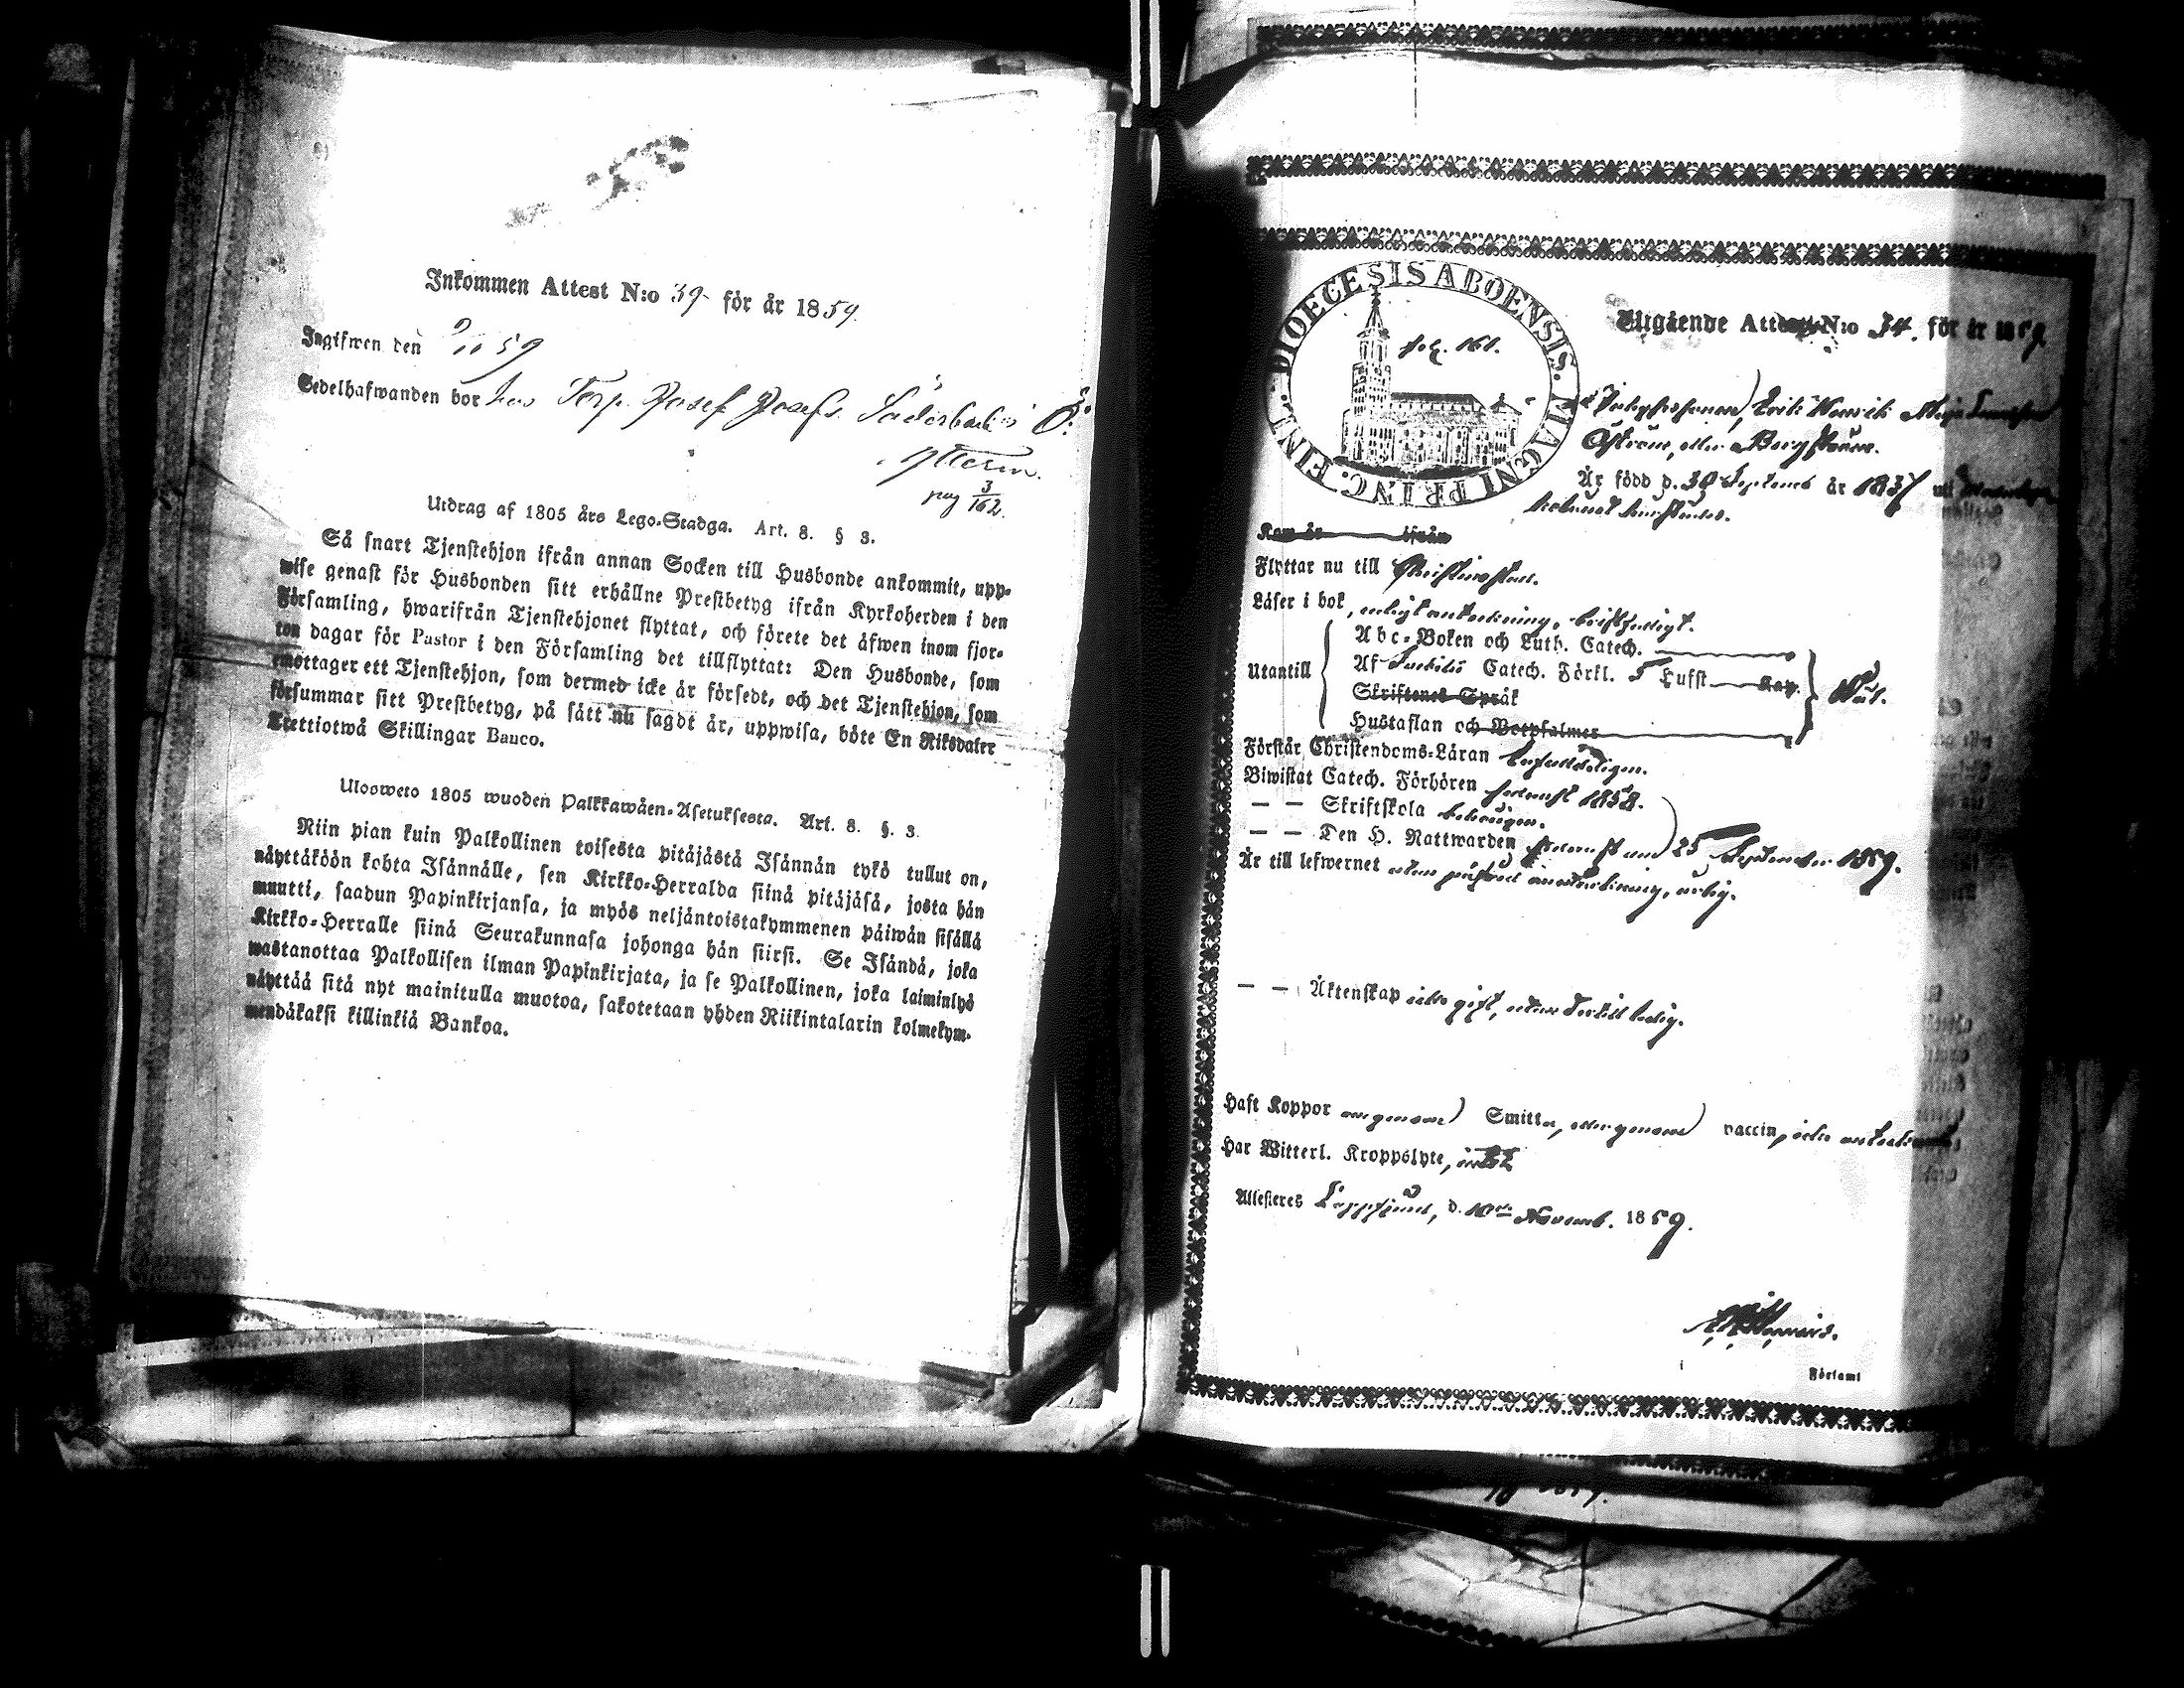 Inkommen Attest N:o 39 för år 1859.
Ingifwen den 9/11 59
Sedelhafwanden bor hos Torp. Josef Josefs. Söderback i Ö:
Ytterm.
pag 3/162.
Utdrag af 1805 års Lego-Stadga. Art. 8. § 3.
Så snart Tjenstehjon ifrån annan Socken till Husbonde ankommit, upp-
wise genast för Husbonden sitt erhållne Prestbetyg ifrån Kyrkoherden i den
Församling, hwarifrån Tjenstehjonet flyttat, och förete det äfwen inom fjor-
ton dagar för Pastor i den Församling det tillflyttat: Den Husbonde, som
emottager ett Tjenstehjon, som dermed icke är försedt, och det Tjenstehjon, som
försummar sitt Prestbetyg, på sätt nu sagdt är, uppwisa, böte En Riksdaler
Trettiotwå Skillingar Banco.
Ulosweto 1805 wuoden Palkkawäen-Asetuksesta. Art. 8. §. 3.
Niin pian kuin Palkollinen toisesta pitäjästä Isännän tykö tullut on,
näyttäköön kohta Isännälle, sen Kirkko-Herralda siinä pitäjäsä, josta hän
muutti, saadun Papinkirjansa, ja myös neljäntoistakymmenen päiwän sisällä
Kirkko-Herralle siinä Seurakunnasa johonga hän siirsi. Se Isändä, joka
wastanottaa Palkollisen ilman Papinkirjata, ja se Palkollinen, joka laiminlyö
näyttää sitä nyt mainitulla muotoa, sakotetaan yhden Riikintalarin kolmekym-
mendäkaksi killinkiä Bankoa.
DIOECESIS ABOENSIS. MAGNI PRINC. FINL.
fol. 161.
Utgående Attest N:o 34. för år 1859.
Erik Henrik
Öström, eller Bergström.
Är född d. 30 Septemb år 1837 uti
Kom år ifrån
Flyttar nu till Christinestad.
Läser i bok, enligt anteckning, försvarligt.
Utantill
Abc-Boken och Luth. Catech.
Af Svebilii Catech. Förkl. 5 Hufst. Kap.
Skriftenes Språk
Hustaflan och Botpsalmer
Förstår Christendoms-Läran
Biwistat Catech. Förhören sednast 1858.
— — Skriftskola behörigen.
— — Den H. Nattwarden sednast den 25 September 1859.
Är till lefwernet utan påförd anmärkning, ärlig.
— — Äktenskap icke gift, utan ledig.
Haft Koppor Smitt vaccin
Har Witterl. Kroppslyte,
Attesteres Lappfjärd, d. 10de Novemb. 1859.